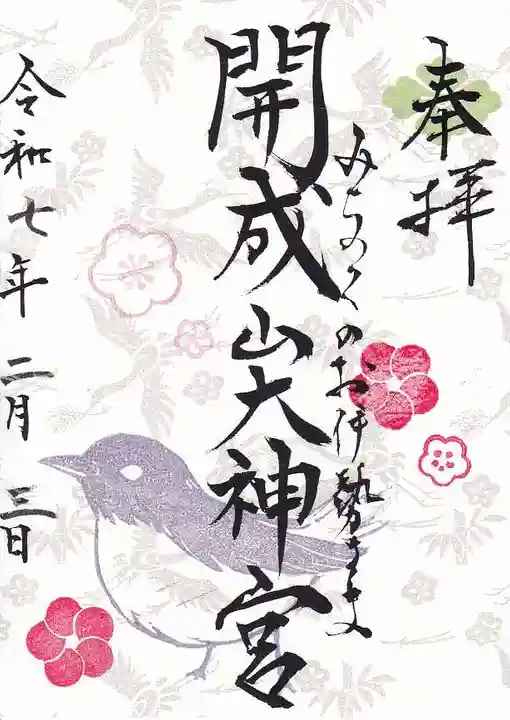 奉拝
みちのくのお伊勢さま
開成山大神宮
令和七年二月三日